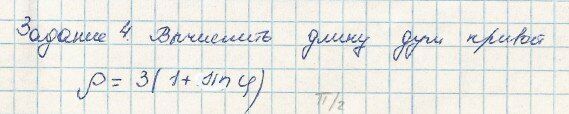 Задание 4. Вычислить длину дуги кривой
ρ = 3(1+ sin φ)
π/2